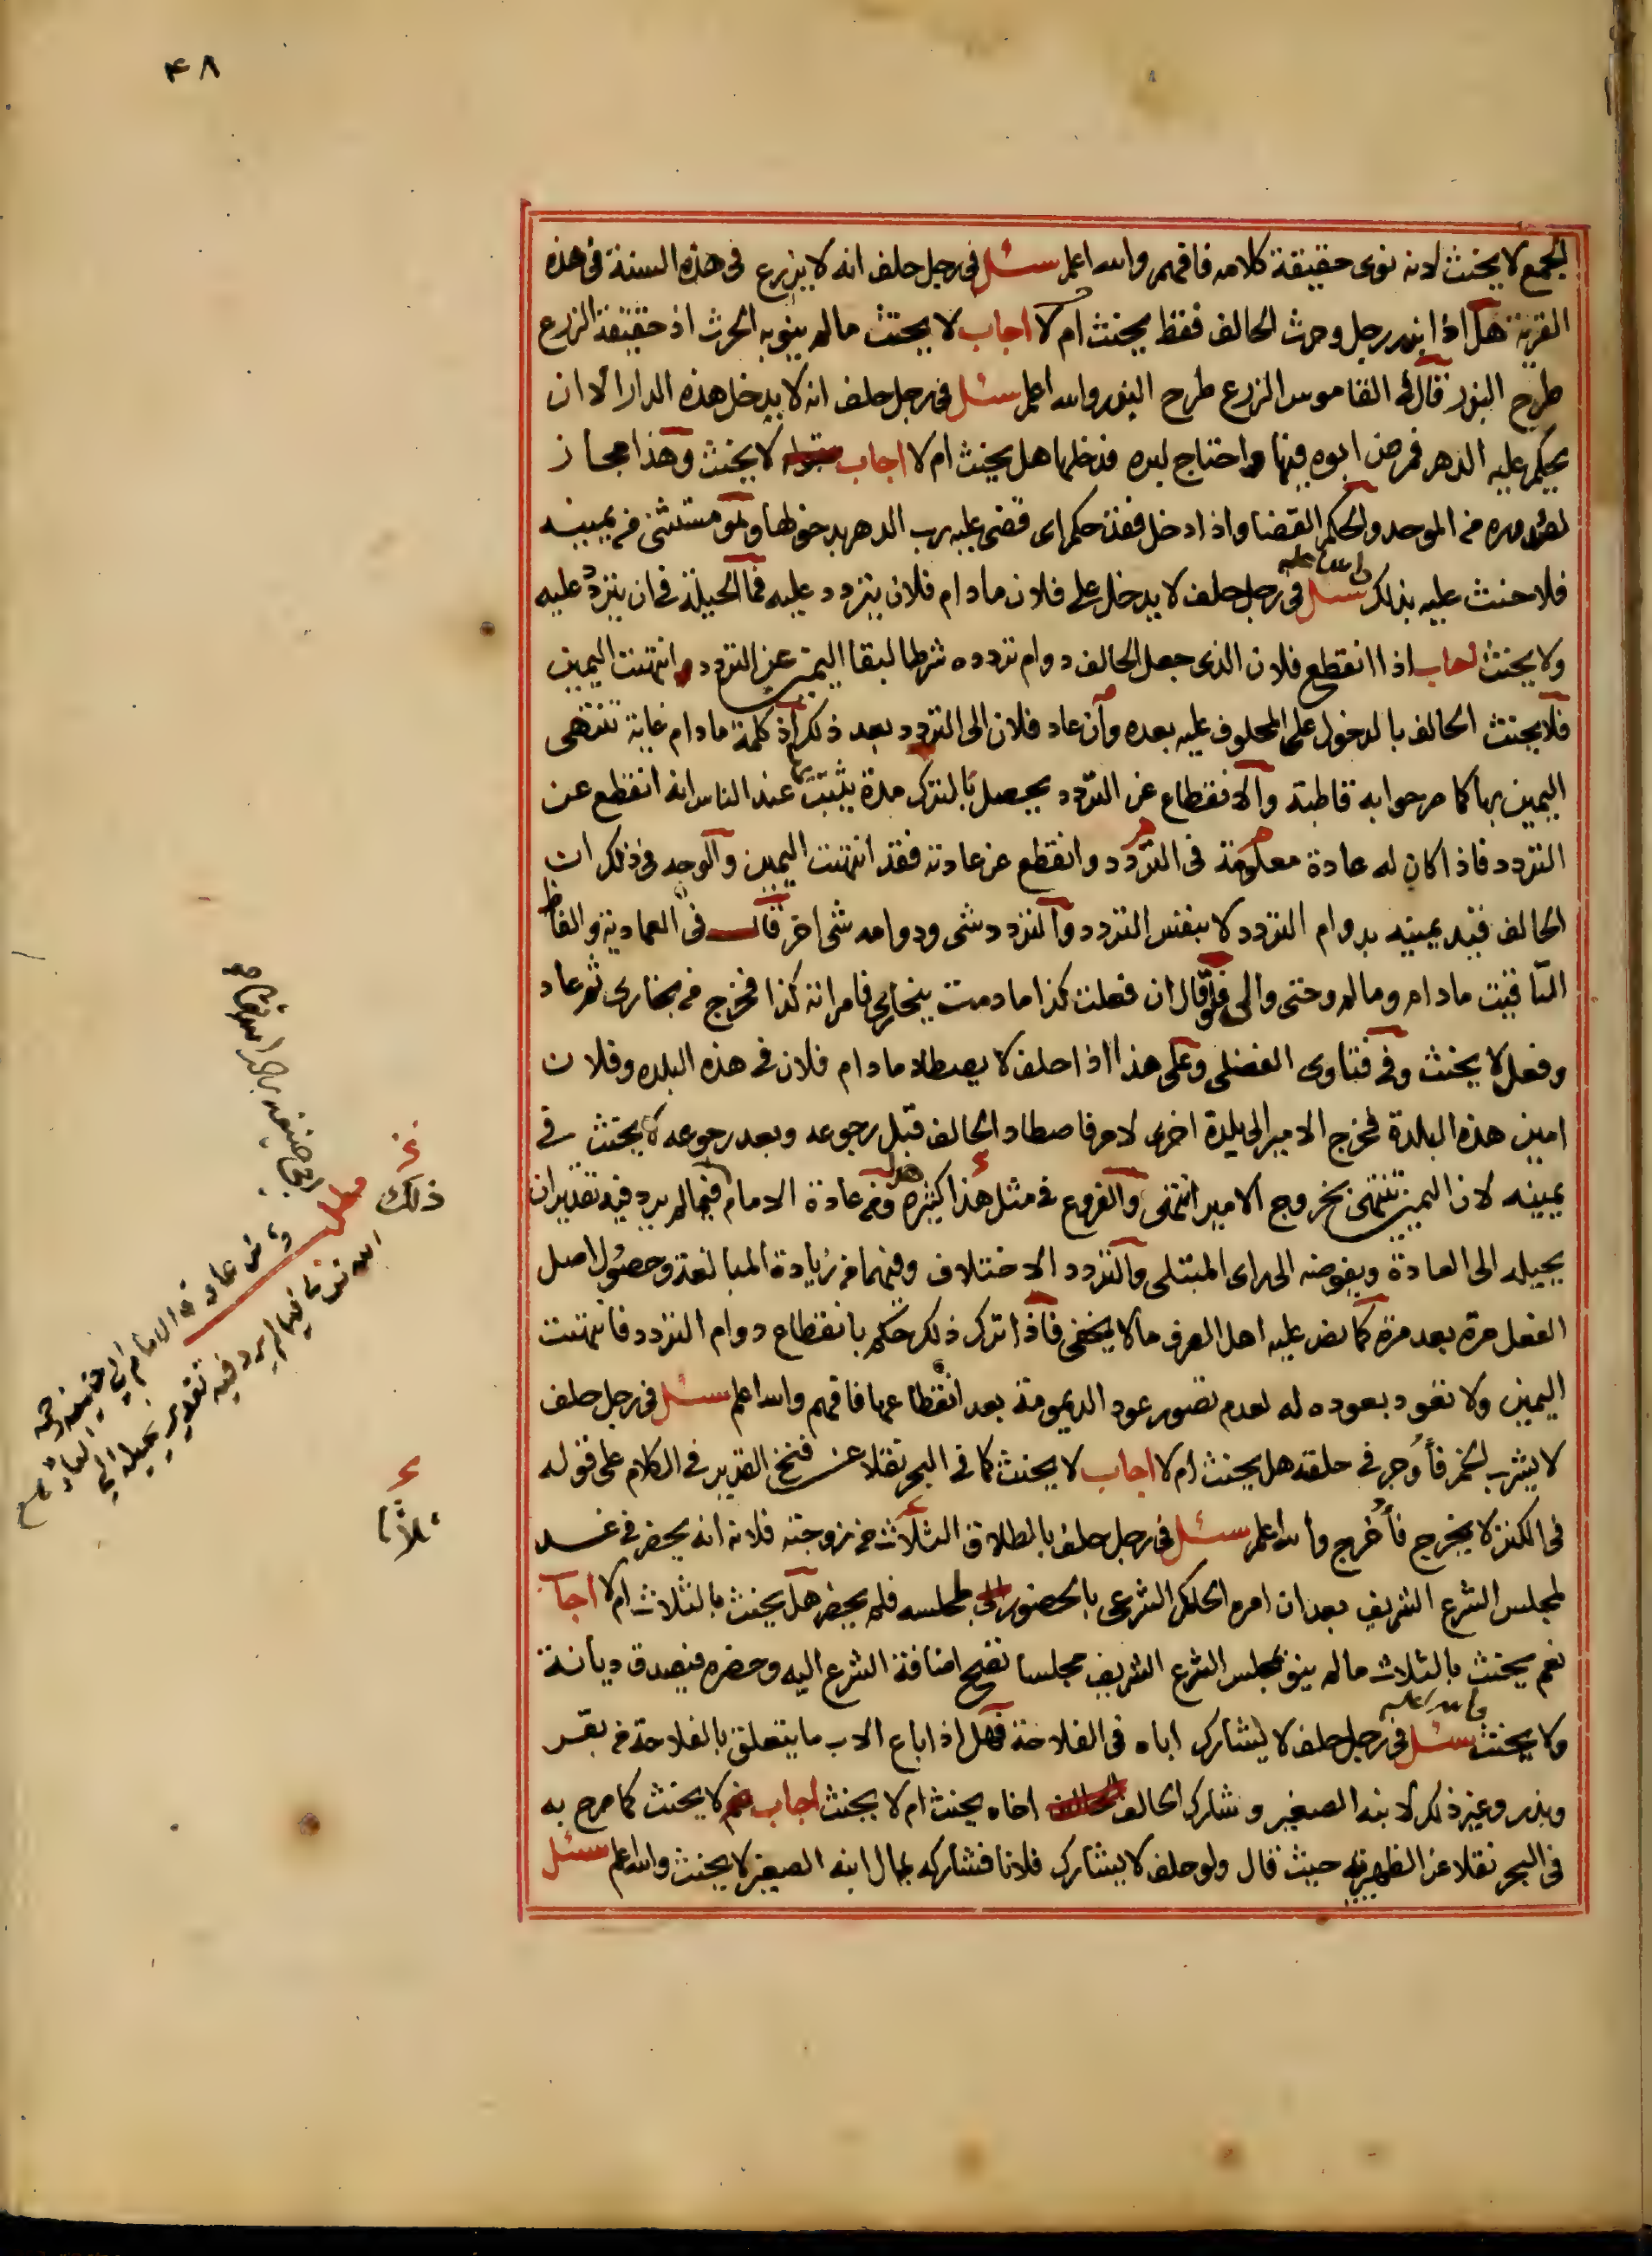 ٤٨
الجمع لا يحنث لانه نوى حقيقة كلامه فافهم والله اعلم سئل في رجل حلف انه لا يزرع في هذه السنة في هذه
القرية هل اذا بذر رجل وحرث الحالف فقط يحنث ام لا اجاب لا يحنث ما لم ينو به الحرث اذ حقيقة الزرع
طرح البذر قال في القاموس الزرع طرح البذر والله اعلم سئل في رجل حلف انه لا يدخل هذه الدار الا ان
يحكم عليه الدهر فمرض ابوه فيها واحتاج لبره فدخلها هل يحنث ام لا اجاب لا يحنث وهذا مجاز
لصدوره من الموحد والحكم القضا واذا دخل فقد حكم اى قضى عليه رب الدهر بدخولها وهو مستثنى من يمينه
فلا حنث عليه بذلك والله اعلم سئل في رجل حلف لا يدخل على فلان ما دام فلان يتردد عليه فما الحيلة في ان يتردد عليه
ولا يحنث اجاب اذا انقطع فلان الذى جعل الحالف دوام تردده شرطا لبقا اليمين عن التردد انتهت اليمين
فلا يحنث الحالف بالدخول على المحلوف عليه بعده وان عاد فلان الى التردد بعد ذلك اذ كلمة ما دام غاية تنتهى
اليمين بها كما صرحوا به قاطبة والانقطاع عن التردد يحصل بالترك مدة يثبت بها عند الناس انه انقطع عن
التردد فاذا كان له عادة معلومة في التردد وانقطع عن عادته فقد انتهت اليمين والوجه في ذلك ان
الحالف قيد يمينه بدوام التردد لا بنفس التردد والتردد شى ودوامه شى اخر قال في العمادية والفاظ
التاقيت ما دام وما لم وحتى والى فلو قال ان فعلت كذا ما دمت ببخارى فامراته كذا فخرج من بخارى ثم عاد
وفعل لا يحنث وفي فتاوى الفضلى وعلى هذا اذا حلف لا يصطاد ما دام فلان في هذه البلده وفلان
امير هذه البلدة فخرج الامير الى بلدة اخرى لامر فاصطاد الحالف قبل رجوعه وبعد رجوعه لا يحنث في
يمينه لان اليمين تنتهى بخروج الامير انتهى والفروع في مثل هذا كثيره هذا ومن عادة الامام فيما لم يرد فيه تقدير ان
يحيله الى العادة ويفوضه الى راى المبتلى والتردد الاختلاف وفيهما من زيادة المبالغة وحصول اصل
الفعل مرة بعد مرة كما نص عليه اهل العرف ما لا يخفى فاذا ترك ذلك حكم بانقطاع دوام التردد فانتهت
اليمين ولا تعود بعوده له لعدم تصور عود الديمومة بعد انقطاعها فافهم والله اعلم سئل في رجل حلف
لا يشرب الخمر فأُوجر في حلقه هل يحنث ام لا اجاب لا يحنث كما في البحر نقلا عن فتح القدير في الكلام على قوله
في الكنز لا يخرج فأُخرج والله اعلم سئل في رجل حلف بالطلاق الثلاث من زوجته فلانه انه يحضر في غد
لمجلس الشرع الشريف بعد ان امره الحاكم الشرعى بالحضور لمجلسه فلم يحضر هل يحنث بالثلاث ام لا اجاب
نعم يحنث بالثلاث ما لم ينو بمجلس الشرع الشريف مجلسا تصح اضافة الشرع اليه وحضره فيصدق ديانة
ولا يحنث والله اعلم سئل في رجل حلف لا يشارك اباه في الفلاحة فهل اذا باع الاب ما يتعلق بالفلاحة من بقر
وبذر وغير ذلك لابنه الصغير وشارك الحالف اخاه يحنث ام لا يحنث اجاب لا يحنث كما صرح به
في البحر نقلا عن الظهيرية حيث قال ولو حلف لا يشارك فلانا فشاركه بمال ابنه الصغير لا يحنث والله اعلم سئل
ذلك
مطلب
ومن عادة الامام ابي حنيفة رحمه
الله تعالى فيما لم يرد فيه تقدير يحيله الى العادة
ثلاثا